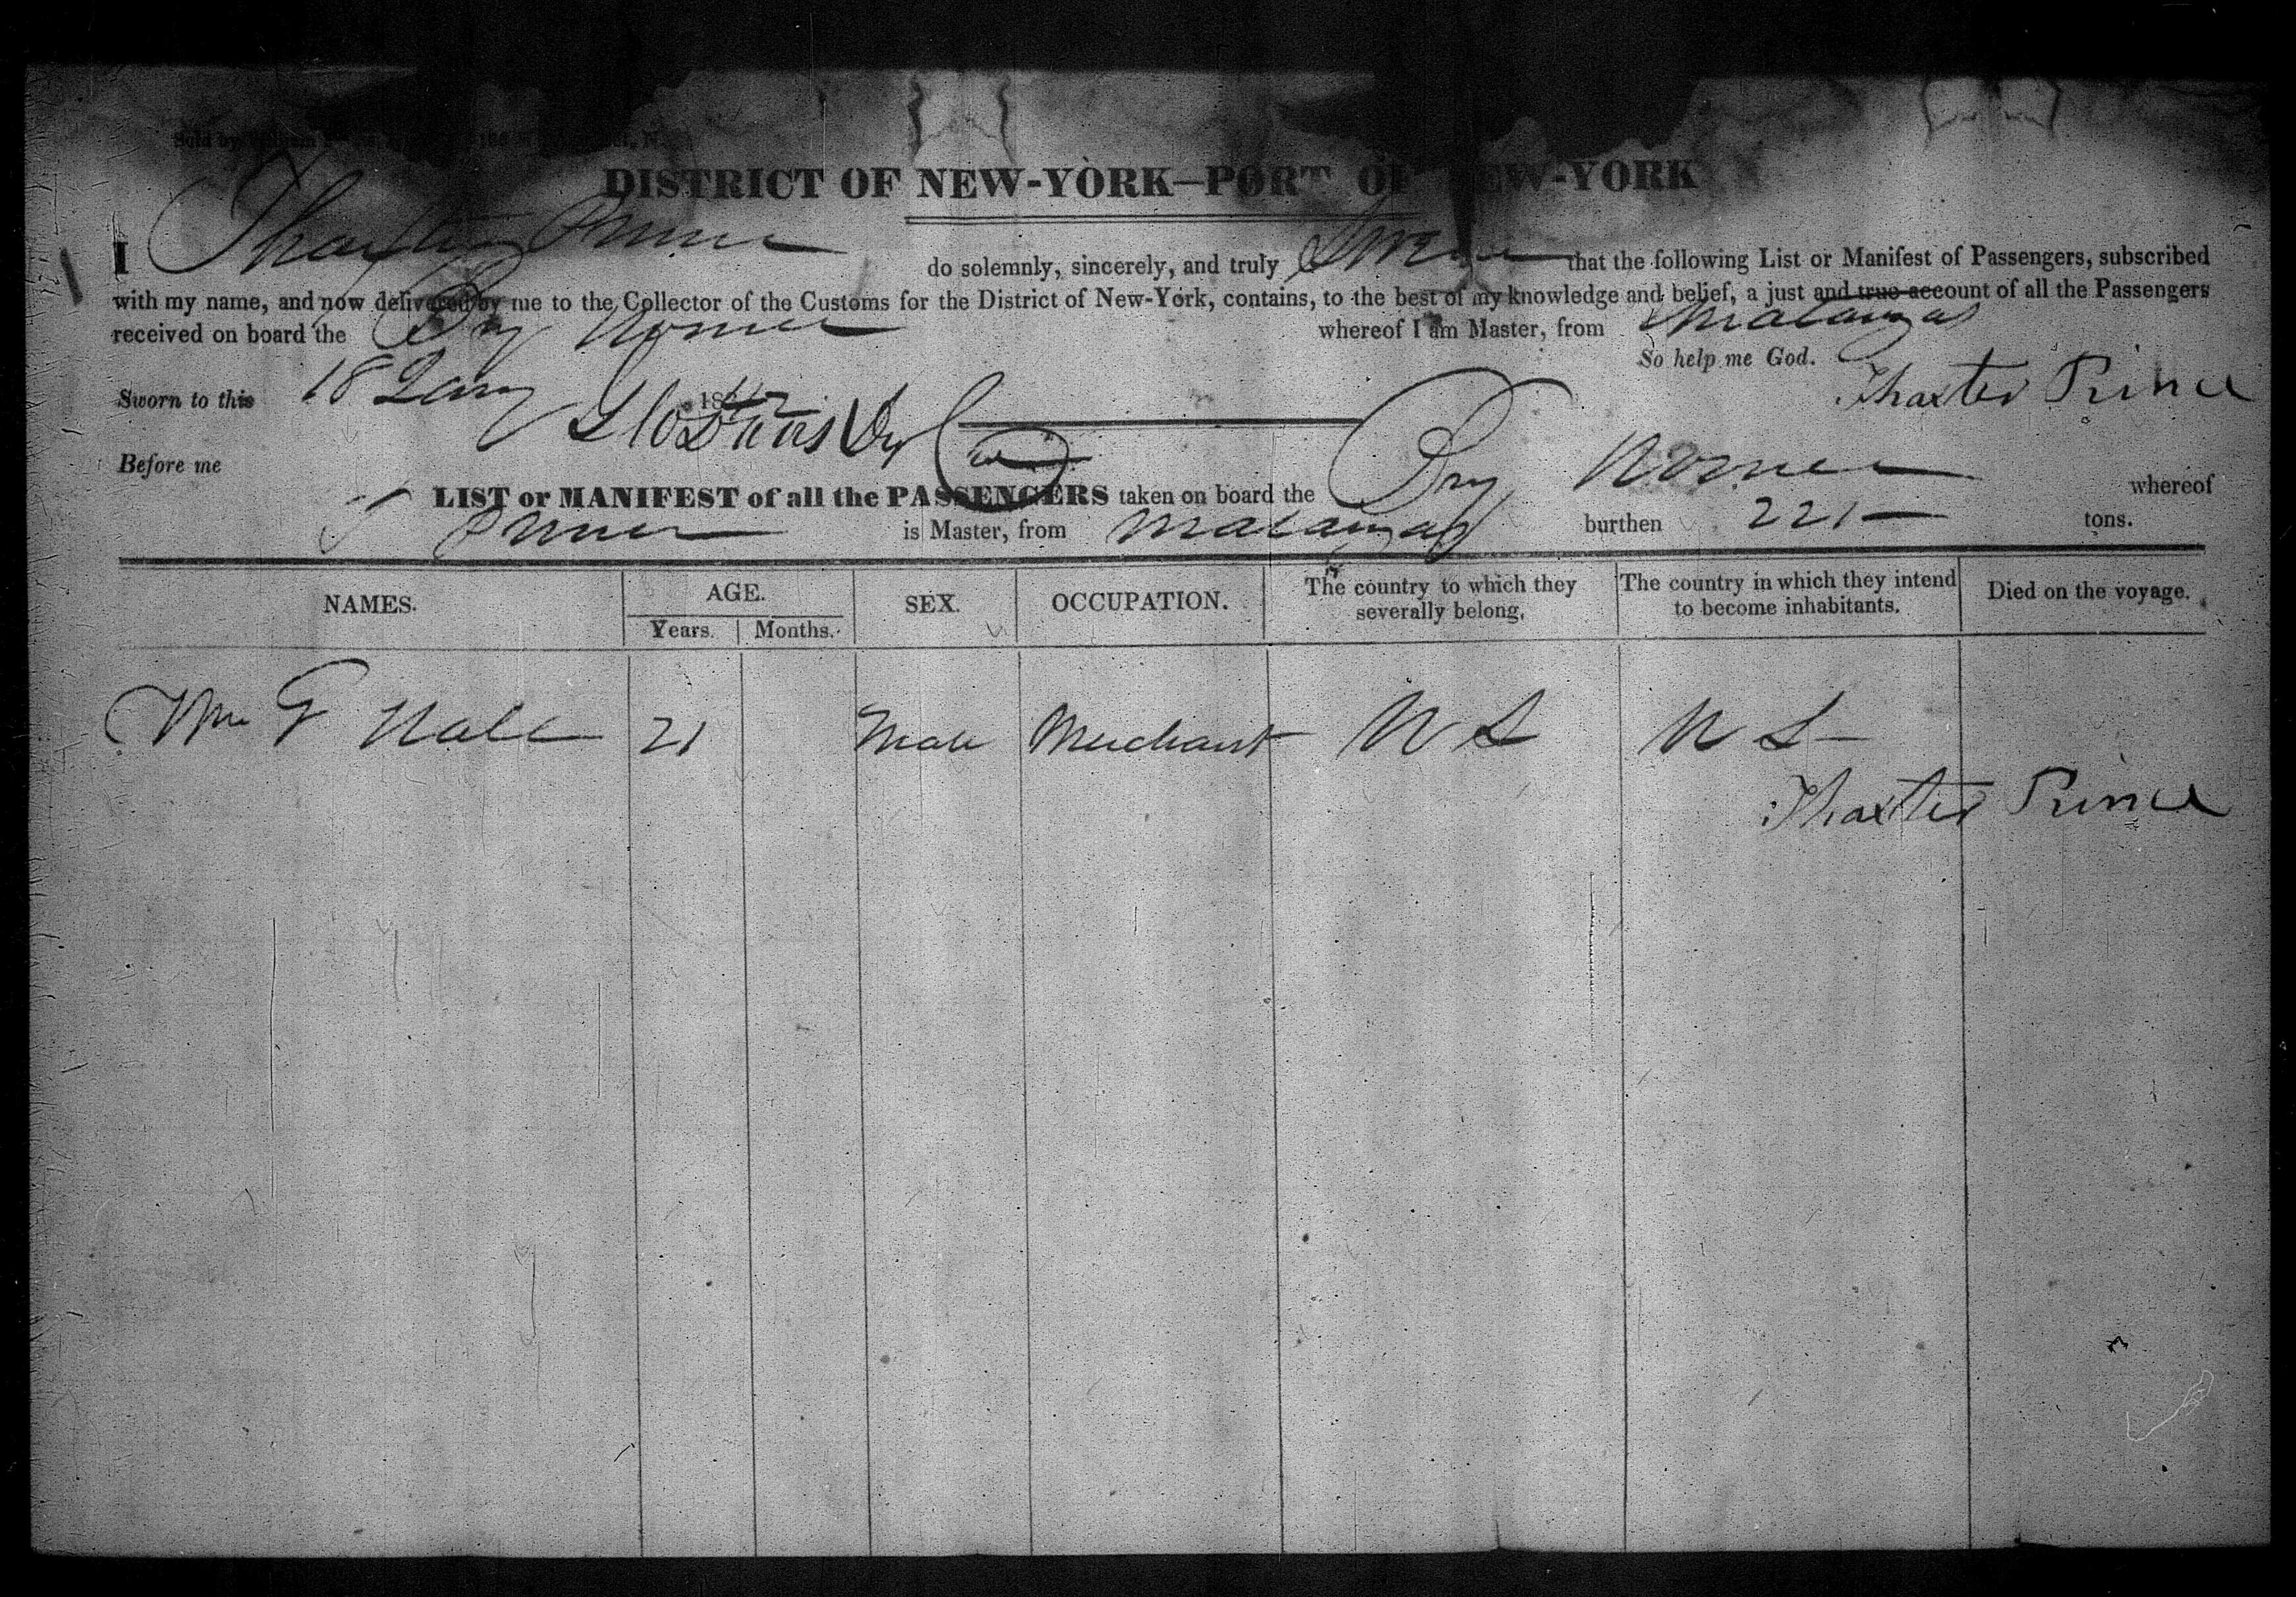 Sold by
DISTRICT OF NEW-YORK—PORT OF NEW-YORK
I Thaxter Prince do solemnly, sincerely, and truly Swear that the following List or Manifest of Passengers, subscribed
with my name, and now delivered by me to the Collector of the Customs for the District of New-York, contains, to the best of my knowledge and belief, a just and true account of all the Passengers
received on board the Brig whereof I am Master, from Matanzas
So help me God.
Sworn to this 18 Jany 1842 Thaxter Prince
Before me
LIST or MANIFEST of all the PASSENGERS taken on board the Brig whereof
Prince is Master, from Matanzas burthen 221 tons.
NAMES. AGE. SEX. OCCUPATION. The country to which they severally belong. The country in which they intend to become inhabitants. Died on the voyage.
Years. Months.
Wm G Hall 21 Male Merchant U S U S
Thaxter Prince